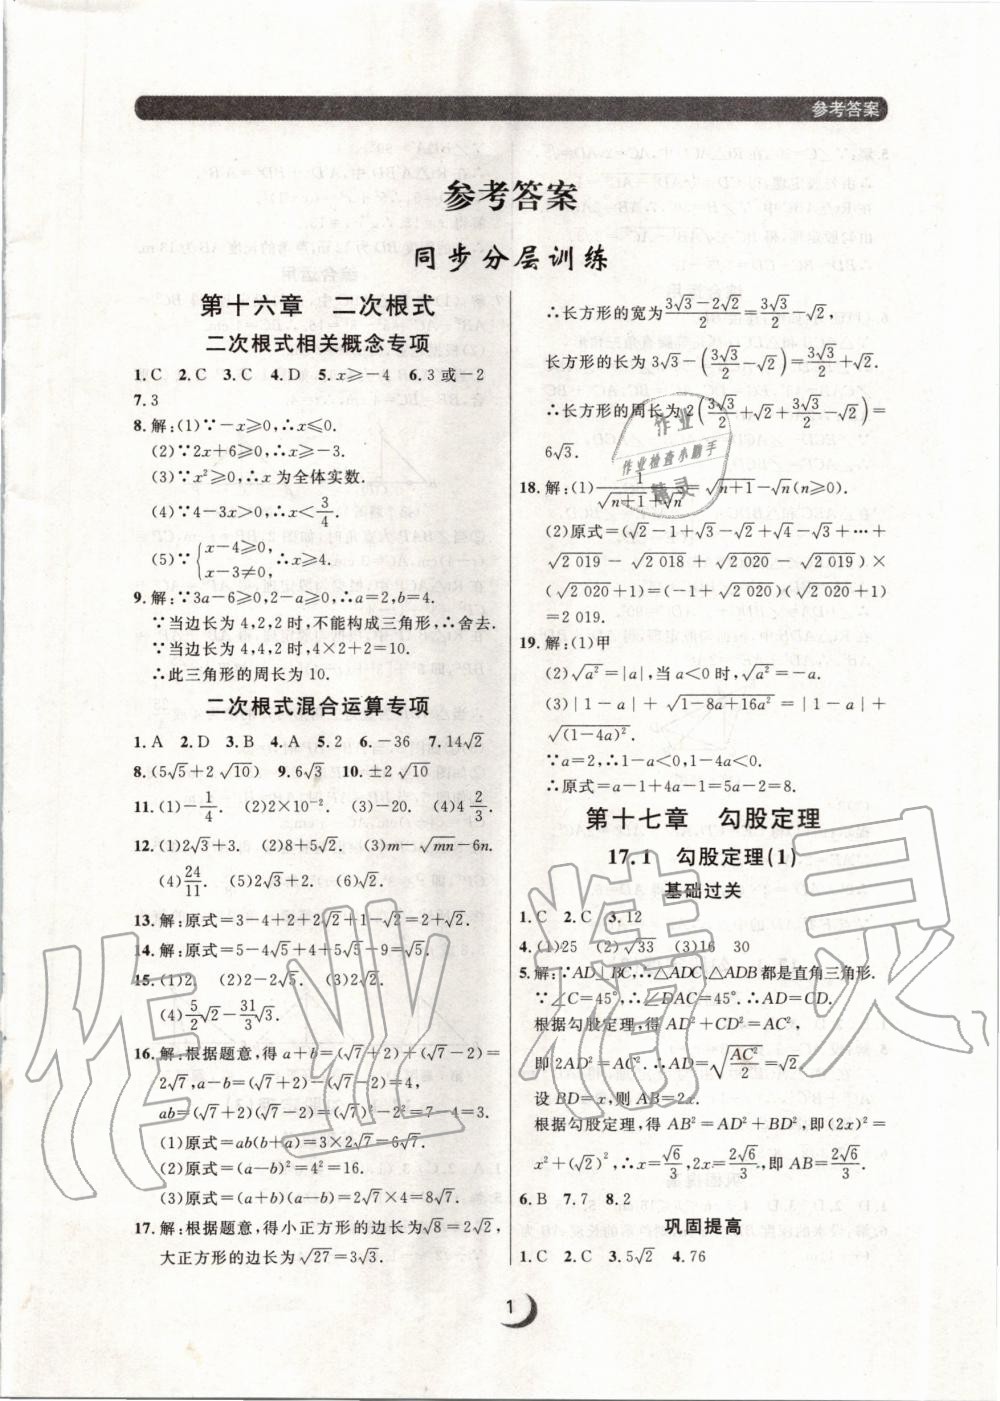 参考答案
参考答案
同步分层训练
第十六章 二次根式
二次根式相关概念专项
1.C 2.C 3.C 4.D 5.x⩾-4 6.3或-2
7.3
8.解:(1)∵-x⩾0,∴x⩽0.
(2)∵2x+6⩾0,∴x⩾-3.
(3)∵x²⩾0,∴x为全体实数.
(4)∵4-3x>0,∴x<3/4.
(5)∵{x-4⩾0, x-3≠0, ∴x⩾4.
9.解:∵3a-6⩾0,2-a⩾0,∴a=2,b=4.
∵当边长为4,2,2时,不能构成三角形,∴舍去.
当边长为4,4,2时,4×2+2=10.
∴此三角形的周长为10.
二次根式混合运算专项
1.A 2.D 3.B 4.A 5.2 6.-36 7.14√2
8.(5√5+2√10) 9.6√3 10.±2√10
11.(1)-1/4. (2)2×10⁻². (3)-20. (4)4 2/3.
12.(1)2√3+3. (2)8+5√2. (3)m-√mn-6n.
(4)24/11. (5)2√3+2. (6)√2.
13.解:原式=3-4+2+2√2+1-√2=2+√2.
14.解:原式=5-4√5+4+5√5-9=√5.
15.(1)2. (2)2-2√5. (3)2√2.
(4)5/2√2-31/3√3.
16.解:根据题意,得a+b=(√7+2)+(√7-2)=
2√7,a-b=(√7+2)-(√7-2)=4,
ab=(√7+2)(√7-2)=(√7)²-2²=7-4=3.
(1)原式=ab(b+a)=3×2√7=6√7.
(2)原式=(a-b)²=4²=16.
(3)原式=(a+b)(a-b)=2√7×4=8√7.
17.解:根据题意,得小正方形的边长为√8=2√2,
大正方形的边长为√27=3√3.
∴长方形的宽为(3√3-2√2)/2=3√3/2-√2,
长方形的长为3√3-(3√3/2-√2)=3√3/2+√2.
∴长方形的周长为2(3√3/2+√2+3√3/2-√2)=
6√3.
18.解:(1)1/(√n+1+√n)=√n+1-√n(n⩾0).
(2)原式=(√2-1+√3-√2+√4-√3+…+
√2 019-√2 018+√2 020-√2 019)×
(√2 020+1)=(-1+√2 020)(√2 020+1)
=2 019.
19.解:(1)甲
(2)√a²=|a|,当a<0时,√a²=-a.
(3)|1-a|+√1-8a+16a²=|1-a|+
√(1-4a)².
∵a=2,∴1-a<0,1-4a<0.
∴原式=a-1+4a-1=5a-2=8.
第十七章 勾股定理
17.1 勾股定理(1)
基础过关
1.C 2.C 3.12
4.(1)25 (2)√33 (3)16 30
5.解:∵AD⊥BC,∴△ADC,△ADB都是直角三角形.
∵∠C=45°,∴∠DAC=45°.∴AD=CD.
根据勾股定理,得AD²+CD²=AC²,
即2AD²=AC².∴AD=√(AC²/2)=√2.
设BD=x,则AB=2x.
根据勾股定理,得AB²=AD²+BD²,即(2x)²=
x²+(√2)²,∴x=√6/3,2x=2√6/3,即AB=2√6/3.
6.B 7.7 8.2
巩固提高
1.C 2.C 3.5√2 4.76
1
作业
作业检查小助手
精灵
作业精灵